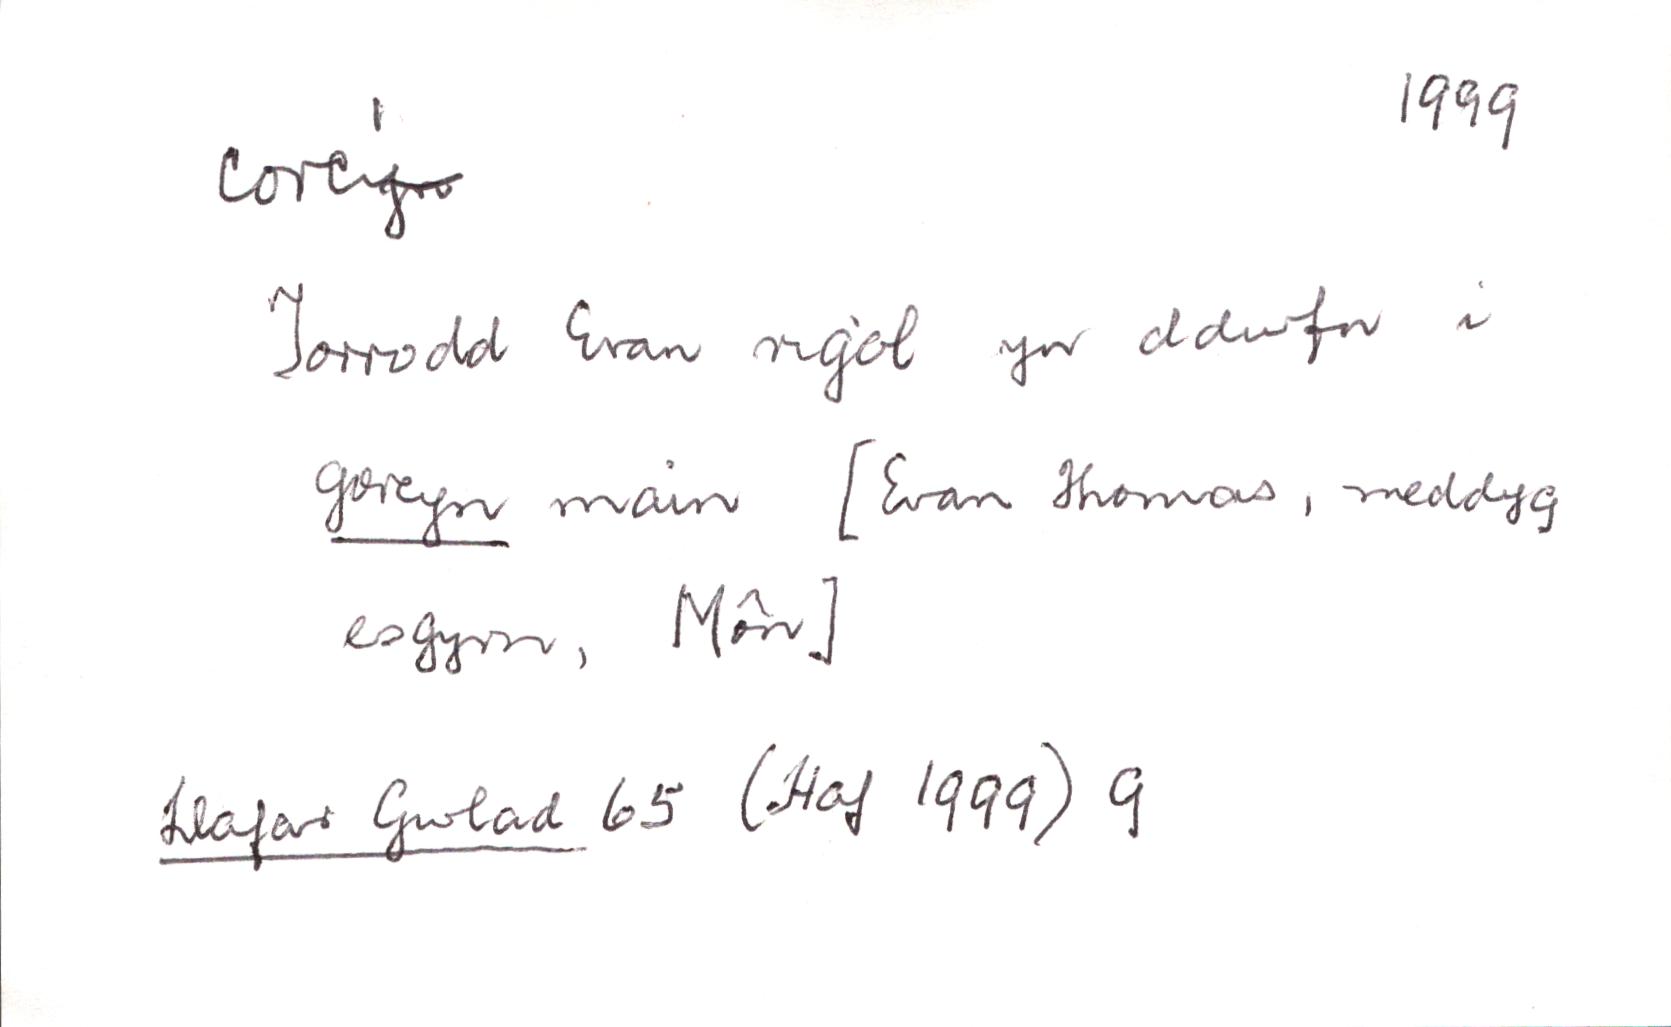 1999
corcyn
Torrodd Evan rigol yn ddwfn i
gorcyn main [Evan Thomas, meddyg
esgyrn, Môn]
Llafar Gwlad 65 (Haf 1999) 9